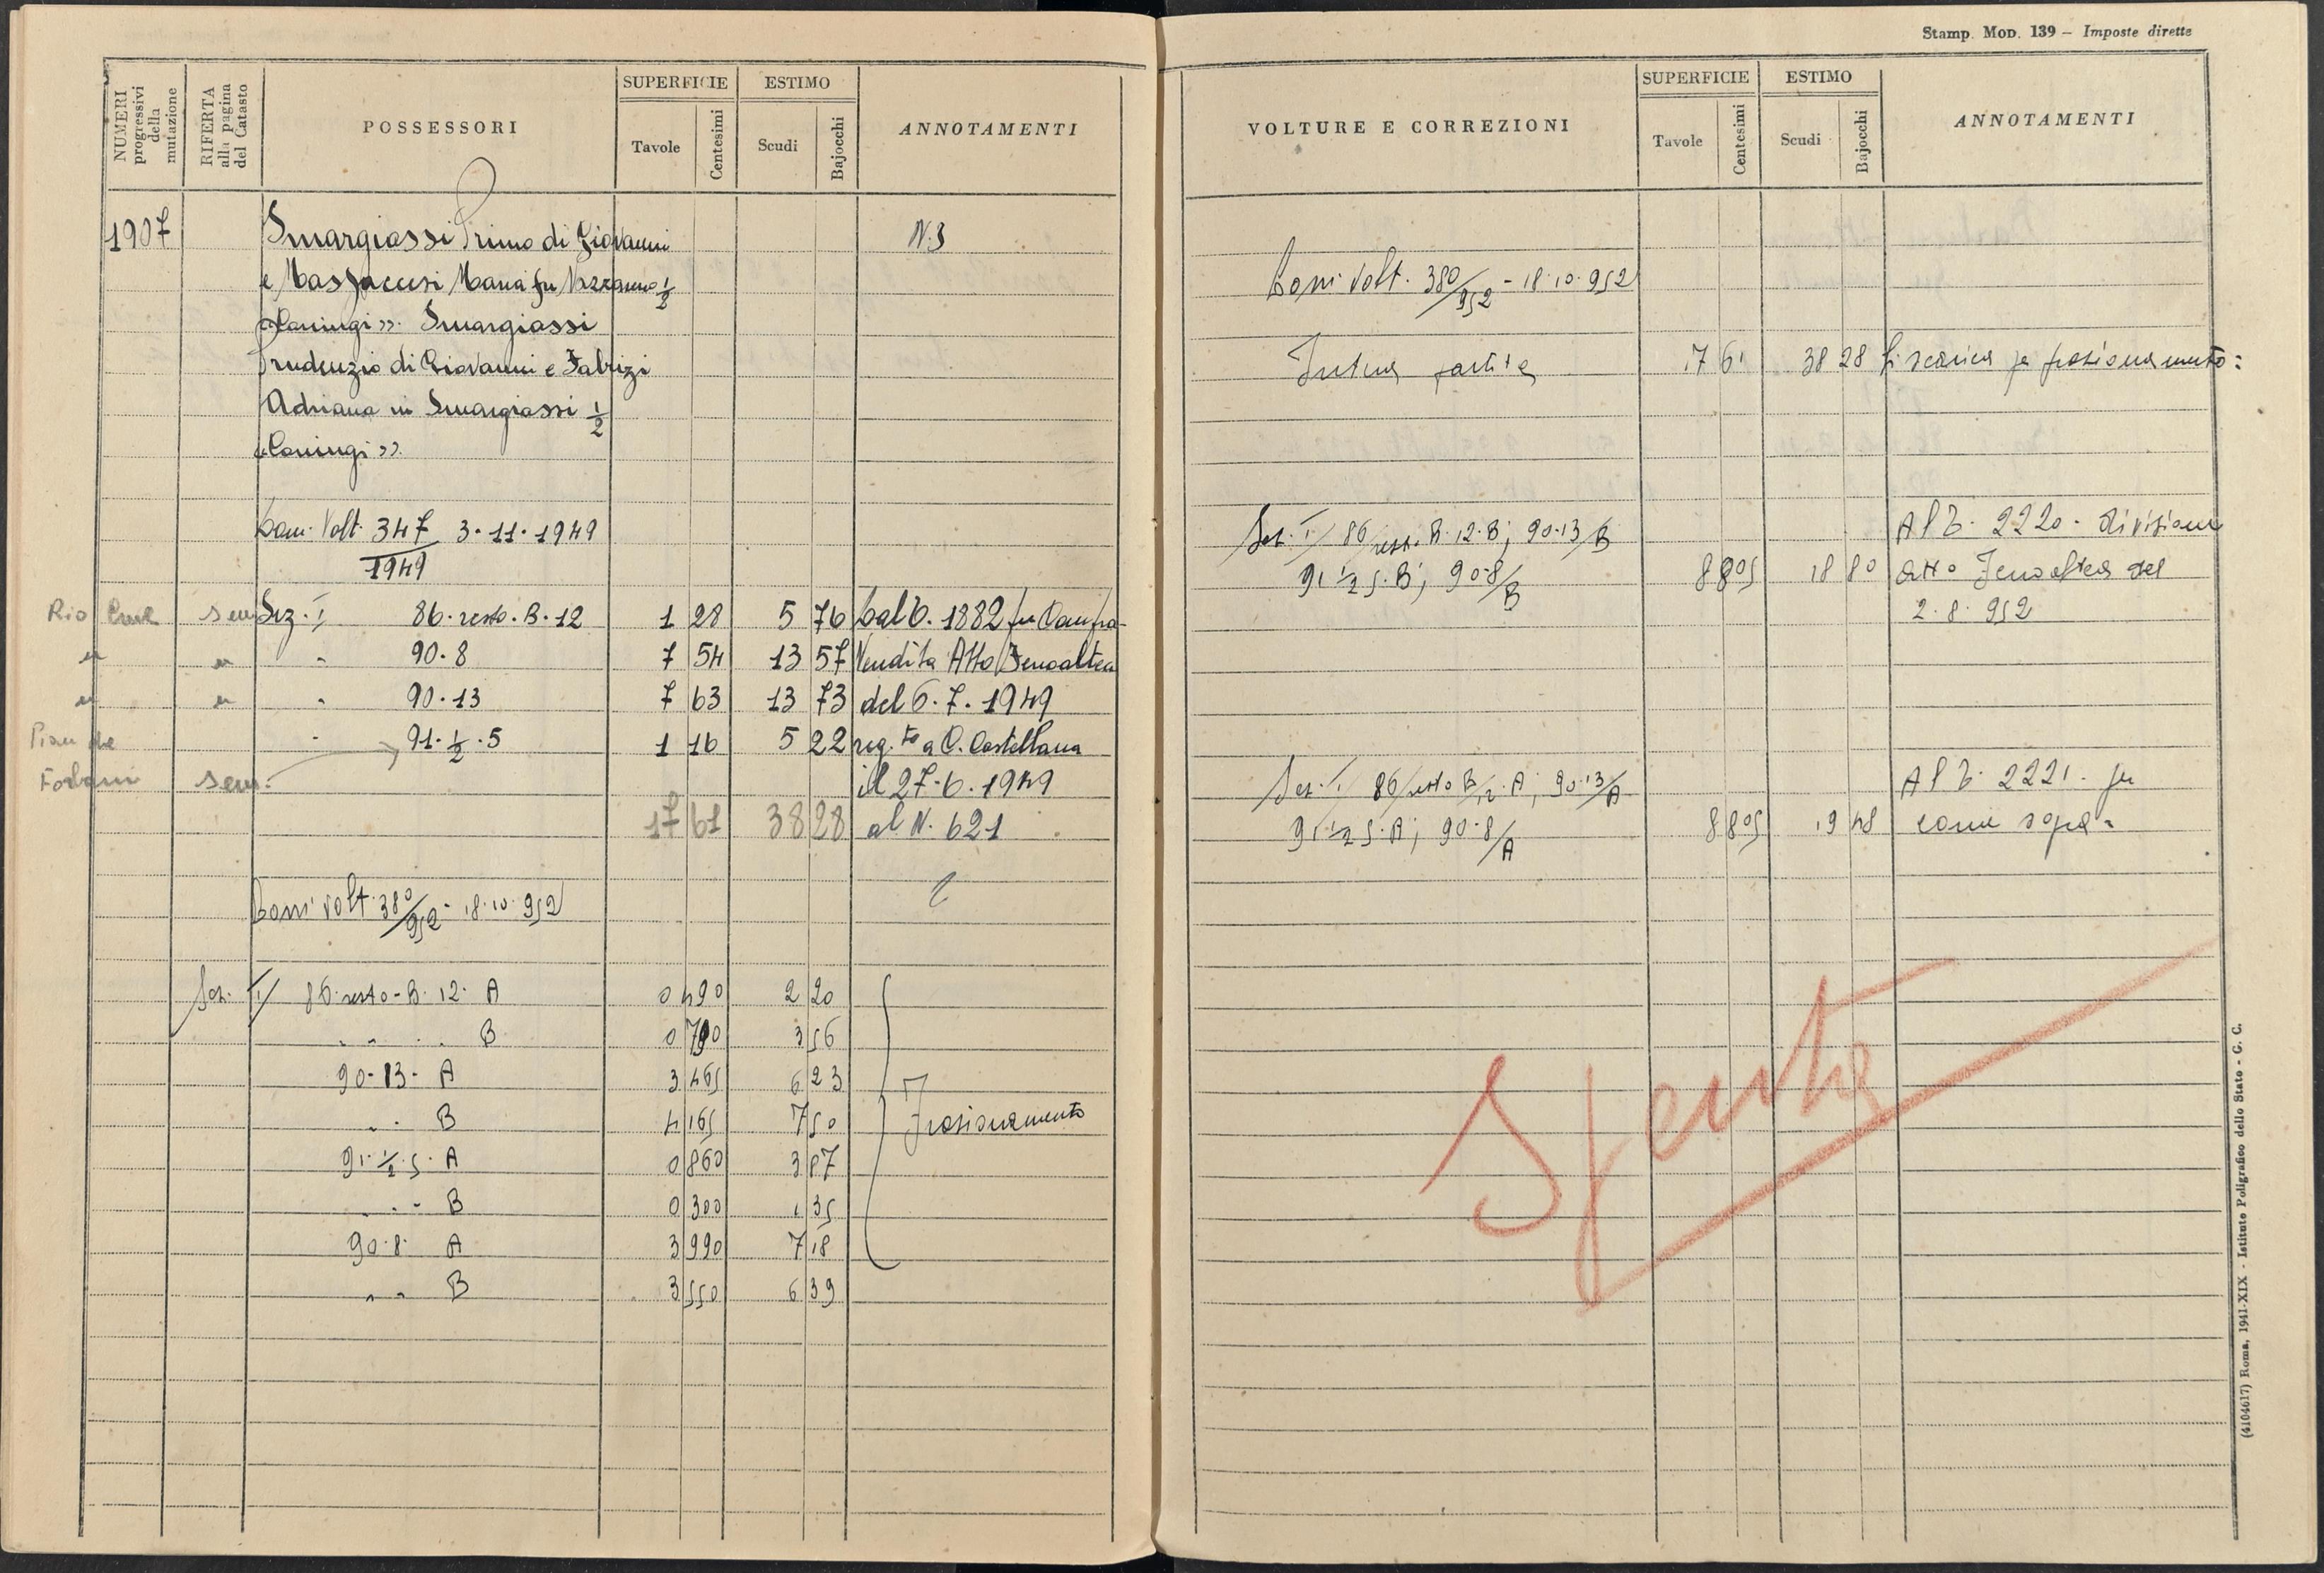 NUMERI progressivi della mutazione
RIFERTA alla pagina del Catasto
POSSESSORI
SUPERFICIE
Tavole
Centesimi
ESTIMO
Scudi
Bajocchi
ANNOTAMENTI
1907
Smargiassi Primo di Giovanni
N. 3
e Massaccesi Maria fu Nazzareno 1/2
«Coniugi». Smargiassi
Prudenzio di Giovanni e Fabrizi
Adriana in Smargiassi 1/2
«Coniugi».
Dom. Volt. 347/1949 3.11.1949
Rio sem Sez. I 86. resto. B. 12 1 28 5 76 Dal 6. 1882 per Compra-
" " " 90.8 7 54 13 57 Vendita Atto Fenoaltea
" " " 90.13 7 63 13 73 del 6.7.1949
Pian de " 91. 1/2 .5 1 16 5 22 reg.to a C. Castellana
sem. il 27.6.1949
17 61 38 28 al N. 621
Dom. Volt. 380/952 - 18.10.952
Sez. I/ 86. resto - B. 12. A 0 490 2 20
" " " B 0 790 3 56
90-13- A 3 465 6 23
" " B 4 165 7 50 Frazionamento
91. 1/2 .5. A 0 860 3 87
" " B 0 300 1 35
90.8. A 3 990 7 18
" " B 3 550 6 39
Stamp. Mod. 139 – Imposte dirette
VOLTURE E CORREZIONI
SUPERFICIE
Tavole
Centesimi
ESTIMO
Scudi
Bajocchi
ANNOTAMENTI
Dom. Volt. 380/952 - 18.10.952
Intera partita 17 61 38 28 Si scarica per frazionamento:
Sez. I/ 86/resto. B. 12. B; 90.13/B Al 6. 2220. divisione
91 1/2 5. B; 90-8/B 8 805 18 80 atto Fenoaltea del
2.8.952
Sez. I/ 86/resto B/12. A; 90.13/A Al 6. 2221. per
91 1/2 5. A; 90.8/A 8 805 19 48 come sopra.
Spenta
(4104617) Roma, 1941-XIX - Istituto Poligrafico dello Stato - G. C.